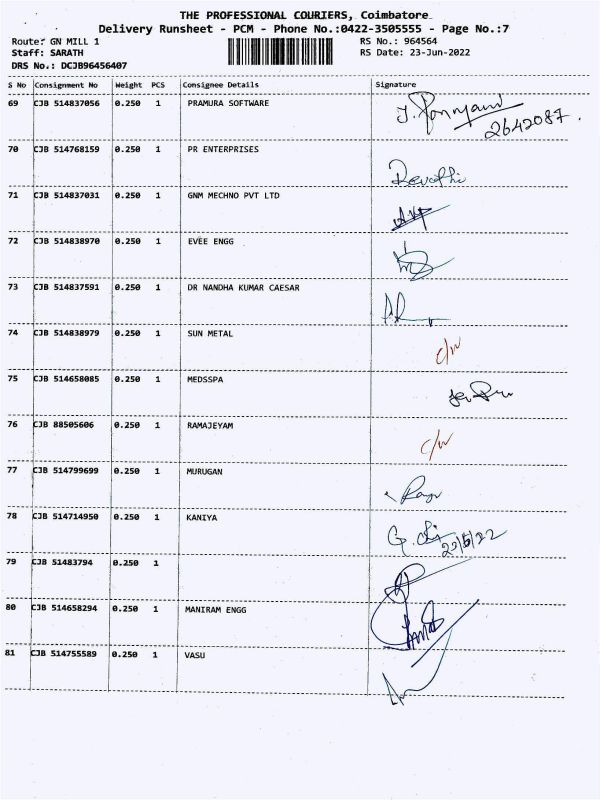 THE PROFESSIONAL COURIERS, Coimbatore
Delivery Runsheet - PCM - Phone No.:0422-3505555 - Page No.:7
Route: GN MILL 1 RS No.: 964564
Staff: SARATH RS Date: 23-Jun-2022
DRS No.: DCJB96456407
S No Consignment No Weight PCS Consignee Details Signature
69 CJB 514837056 0.250 1 PRAMURA SOFTWARE
2642087.
70 CJB 514768159 0.250 1 PR ENTERPRISES
Revathi
71 CJB 514837031 0.250 1 GNM MECHNO PVT LTD
72 CJB 514838970 0.250 1 EVEE ENGG
73 CJB 514837591 0.250 1 DR NANDHA KUMAR CAESAR
74 CJB 514838979 0.250 1 SUN METAL
c/w
75 CJB 514658085 0.250 1 MEDSSPA
76 CJB 88505606 0.250 1 RAMAJEYAM
c/w
77 CJB 514799699 0.250 1 MURUGAN
78 CJB 514714950 0.250 1 KANIYA
79 CJB 51483794 0.250 1
80 CJB 514658294 0.250 1 MANIRAM ENGG
81 CJB 514755589 0.250 1 VASU